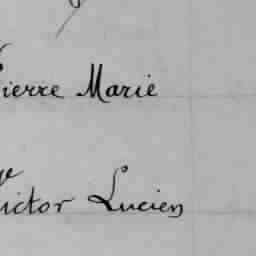 Pierre Marie
Victor Lucien